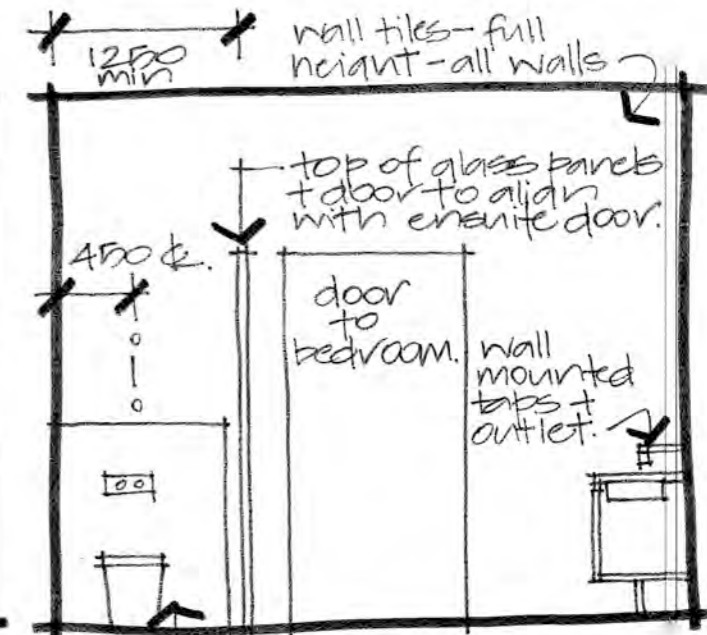 1250
min
wall tiles - full
height - all walls
top of glass panels
+ door to align
with ensuite door.
450 ℄.
door
to
bedroom.
wall
mounted
taps +
outlet.